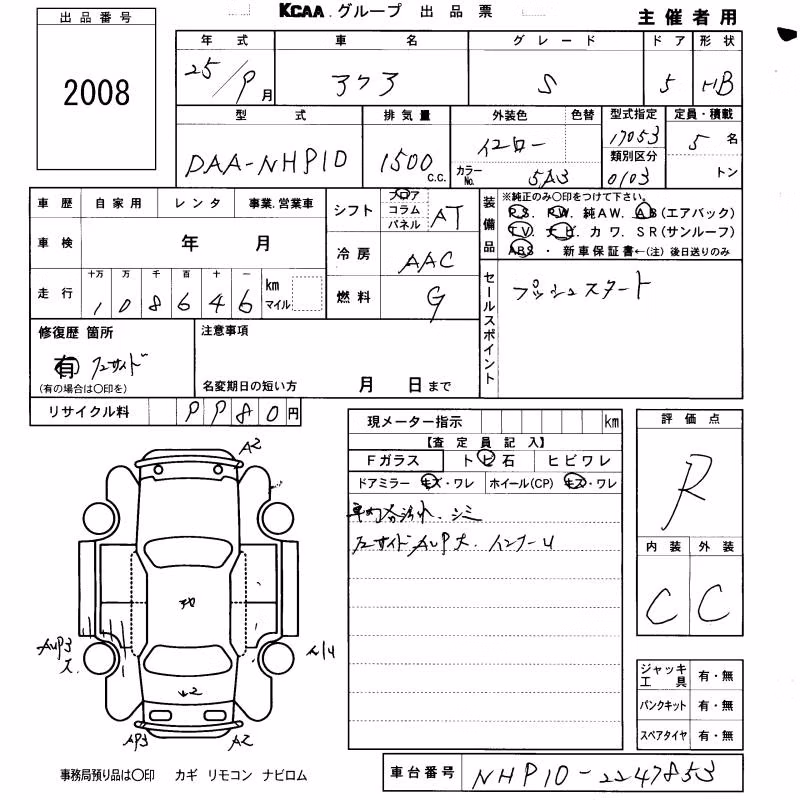 出品番号
2008
KCAA.グループ 出品票
主催者用
年式 車名 グレード ドア 形状
25/9月 アクア S 5 HB
型式 排気量 外装色 色替 型式指定 定員・積載
DAA-NHP10 1500 c.c. イエロー 17053 5名
カラーNo. 5A3 類別区分 0103 トン
車歴 自家用 レンタ 事業.営業車
車検 年 月
走行 十万 万 千 百 十 一 km マイル
1 0 8 6 4 6
シフト フロア コラム パネル AT
冷房 AAC
燃料 G
装備品
※純正のみ〇印をつけて下さい。
P.S. P.W. 純AW. A.B(エアバック)
T.V. ナビ. カワ. SR(サンルーフ)
ABS ・ 新車保証書←(注) 後日送りのみ
セールスポイント
プッシュスタート
修復歴 箇所
有 左サイド
(有の場合は〇印を)
注意事項
名変期日の短い方 月 日まで
リサイクル料 9980円
現メーター指示 km
【査定員記入】
Fガラス トビ石 ヒビワレ
ドアミラー キズ・ワレ ホイール(CP) キズ・ワレ
シミ
左サイドAUP大.インナーU
評価点
R
内装 外装
C C
A2
AUP3
AP3
A2
ジャッキ工具 有・無
パンクキット 有・無
スペアタイヤ 有・無
事務局預り品は〇印 カギ リモコン ナビロム
車台番号 NHP10-2247853